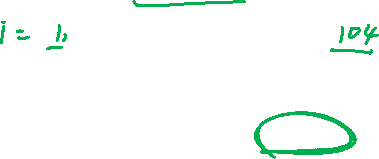 i = 1, 104